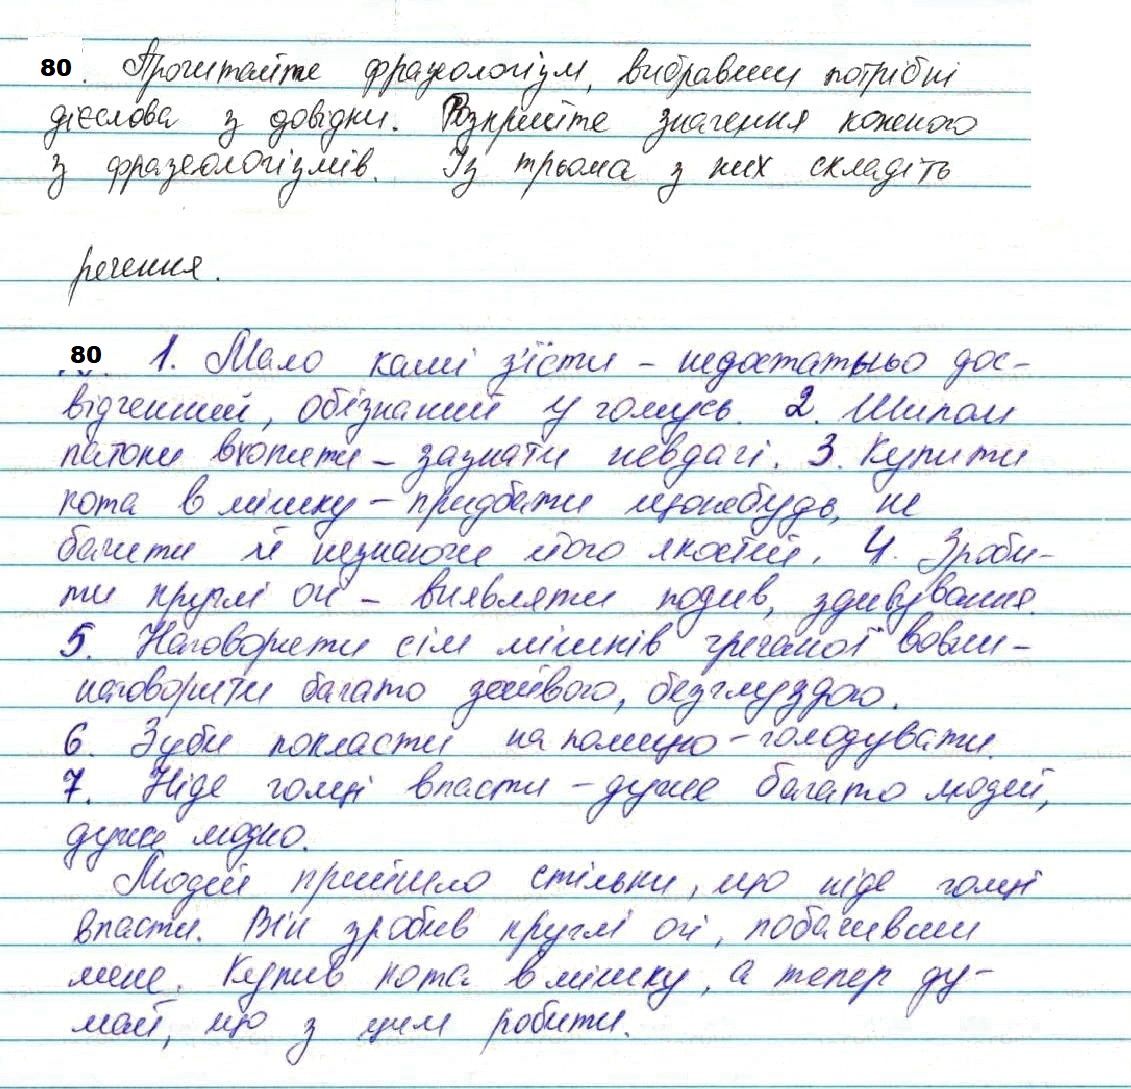 80. Прочитайте фразеологізм, вибравши потрібні
дієслова з довідки. Розкрийте значення кожного
з фразеологізмів. Із трьома з них складіть
речення.
80 1. Мало каші з'їсти – недостатньо дос-
відчений, обізнаний у чомусь. 2. Шилом
патоки вхопити – зазнати невдачі. 3. Купити
кота в мішку – придбати щонебудь, не
бачити й незнаючи його якостей. 4. Зроби-
ти круглі очі – виявляти подив, здивування.
5. Наговорити сім мішків гречаної вовни –
наговорити багато зайвого, безглуздого.
6. Зуби покласти на полицю – голодувати.
7. Ніде голці впасти – дуже багато людей,
дуже людно.
Людей прийшло стільки, що ніде голці
впасти. Він зробив круглі очі, побачивши
мене. Купив кота в мішку, а тепер ду-
май, що з цим робити.